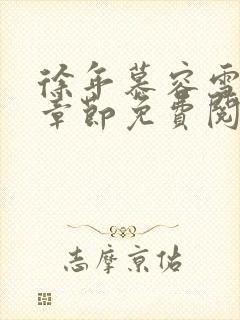 徐年慕容雪
章節免費閱
志摩京佑